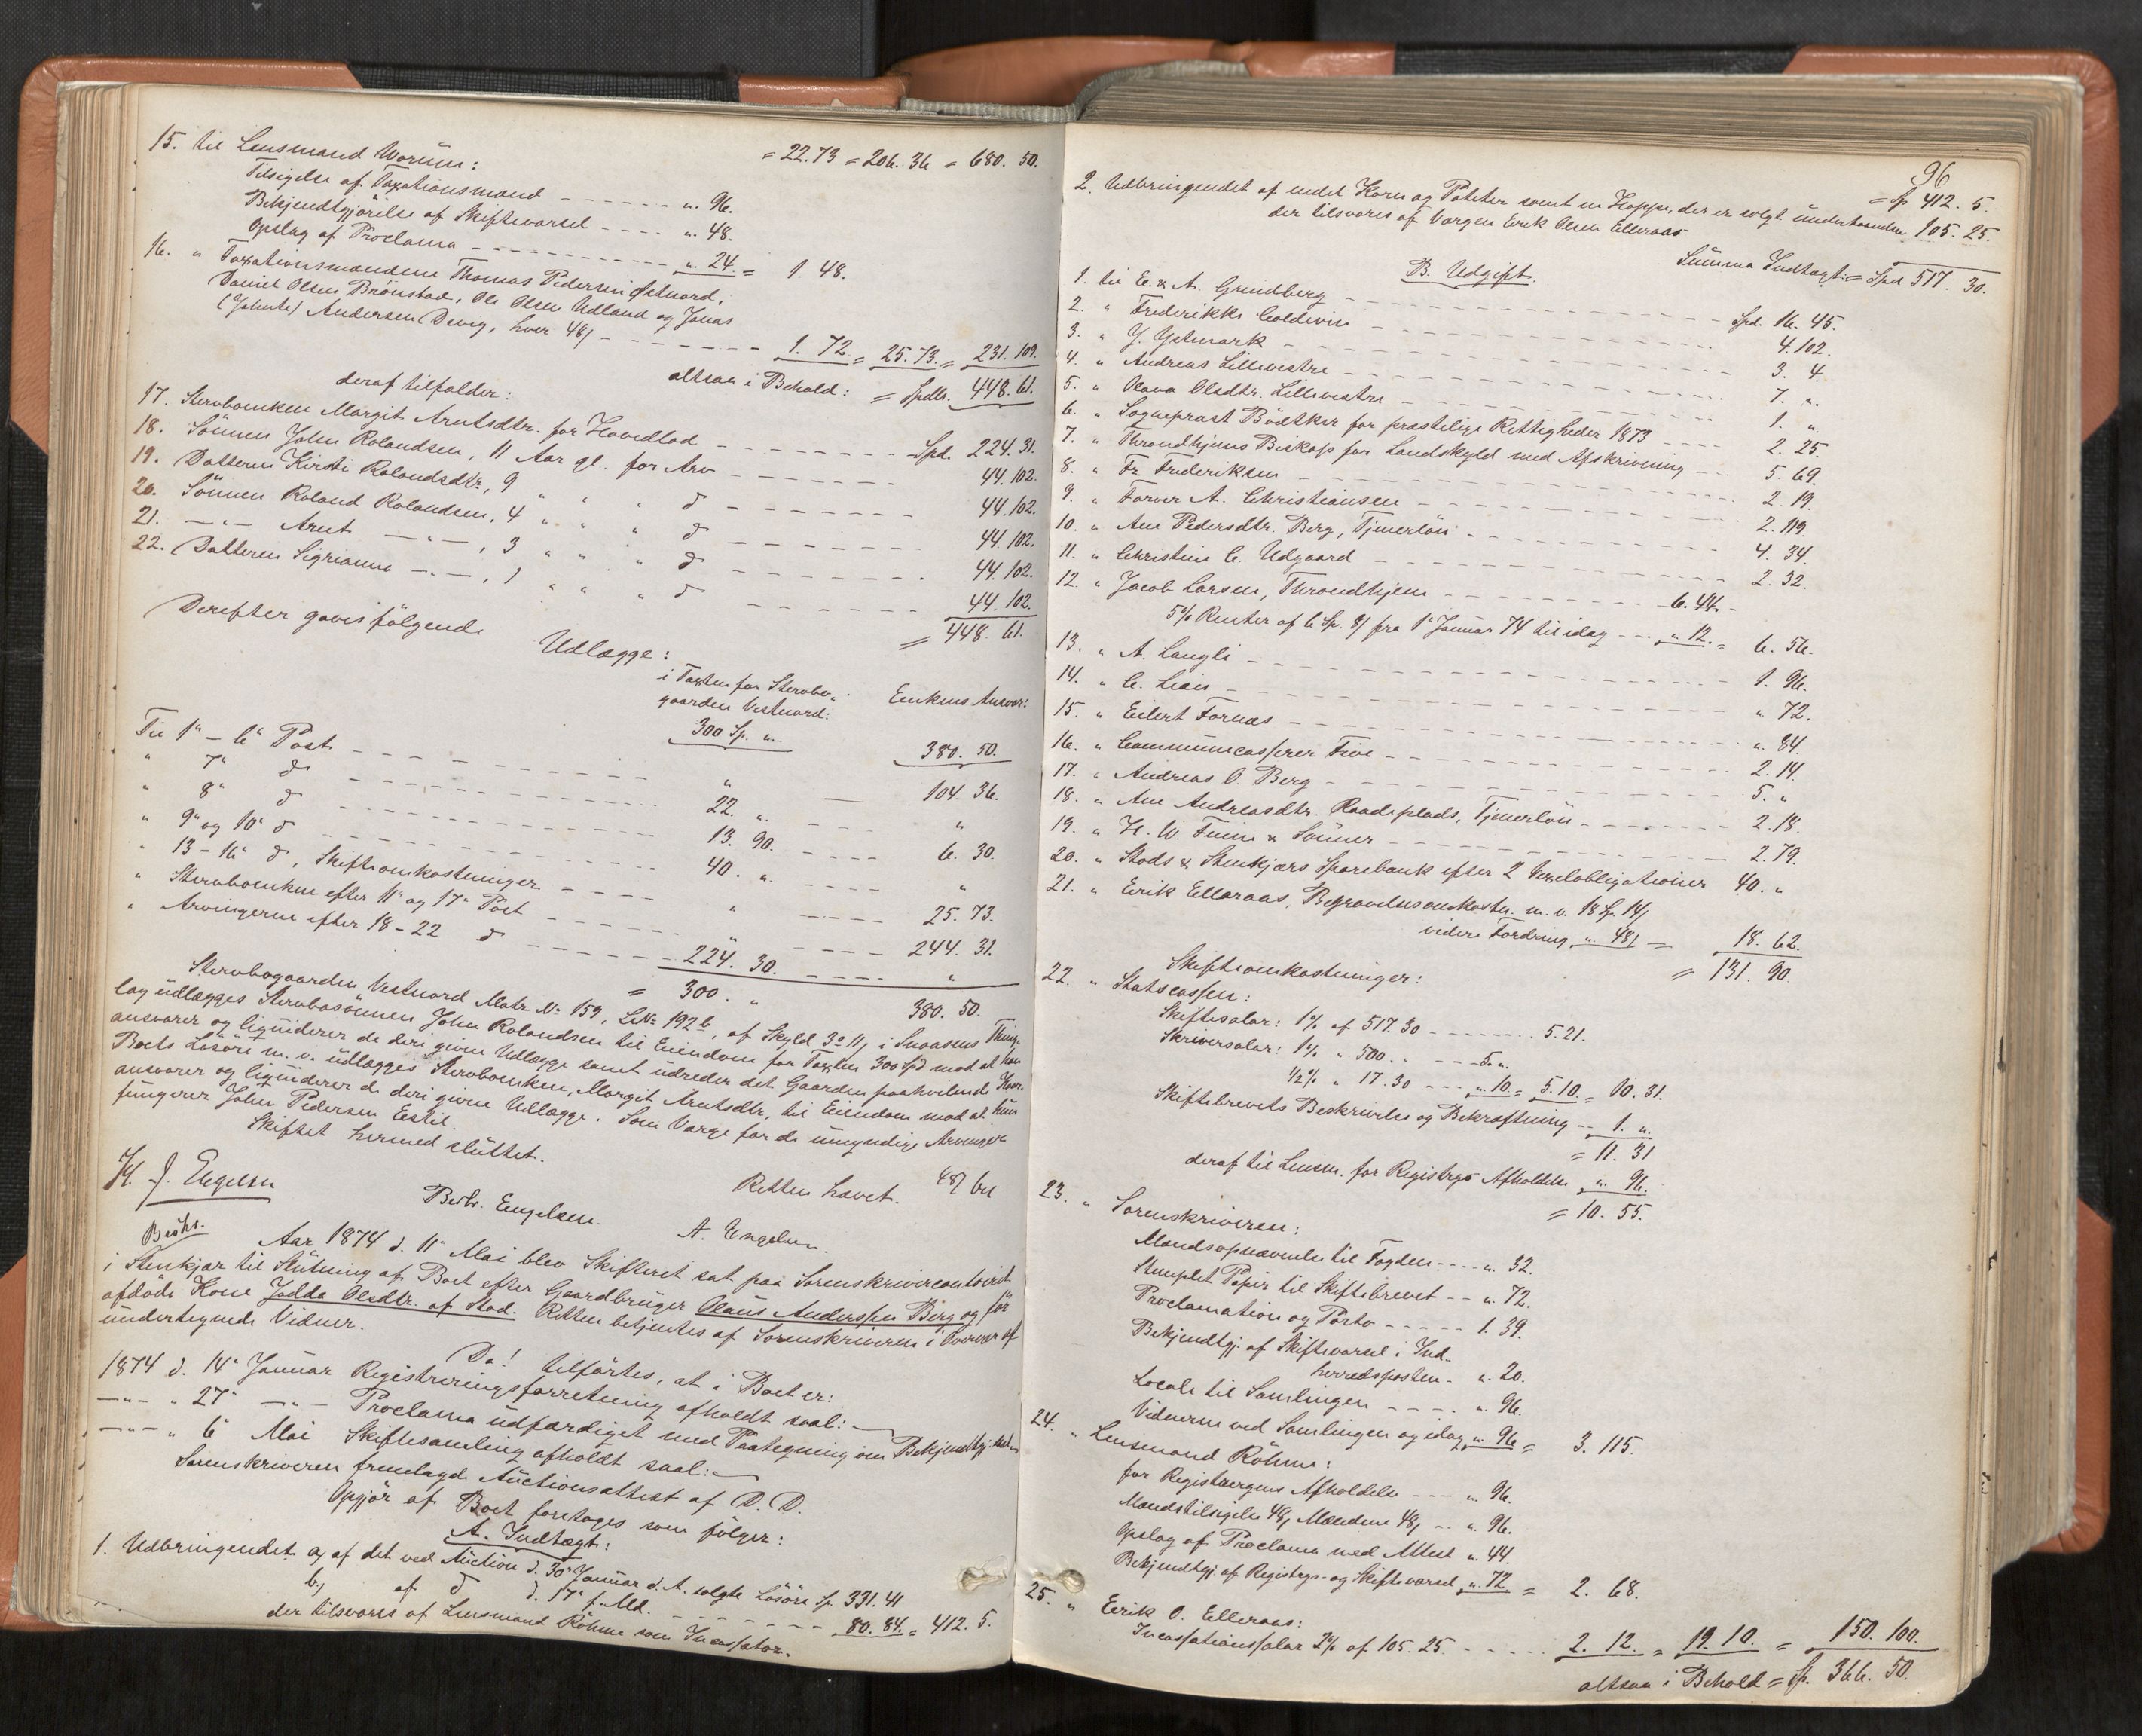 15. til Lensmand Worum: = 22.73 = 206.36 = 680. 50.
Tilsigelse af Taxationsmænd - - - - - - " 96.
Bekjendtgjörelse af Skiftevarsel - - - - " 48.
Opslag af Proclama - - - - - - - - - - " 24. = 1. 48.
16. " Taxationsmændene Thomas Pedersen Østnord,
Daniel Olsen Brönstad, Ole Olsen Udland og Jonas
Andersen Devig, hver 48/ - - - - - - - 1. 72. = 25.73. = 231. 109.
altsaa i Behold: = Spdlr. 448. 61.
deraf tilfalder:
17. Stervboenken Margit Arntsdtr. for Hovedlod - - - - - - - - Spd. 224. 31.
18. Sönnen John Rolandsen, 11 Aar gl. for Arv - - - - - - 44. 102.
19. Datteren Kirsti Rolandsdtr, 9 " " " d - - - - - - - 44. 102.
20. Sönnen Roland Rolandsen, 4 " " " d - - - - - - - 44. 102.
21. —"— Arnt —"—, 3 " " " d - - - - - - - 44. 102.
22. Datteren Sigrianna —"—, 1 " " " d - - - - - - - 44. 102.
= 448. 61.
Derefter gaves fölgende
Udlægge:
i Taxten for Stervbo-
gaarden Vestnord: Enkens Ansvar:
300 Sp. " 380. 50.
Til 1" - 6" Post - - - - - " — 104. 36.
" 7" d - - - - - 22. " - - - - "
" 8" d - - - - - 13. 90. - - - - 6. 30.
" 9" og 10" d - - - - - 40. " - - - - "
" 13 - 16" d, Skifteomkostninger - - - - " - - - - 25. 73.
" Stervboenken efter 11" og 17" Post - - - - " - - - - 244. 31.
" Arvingerne efter 18 - 22 d - - - - - 224. 30. - - - - "
= 300. " 380. 50.
Stervbogaarden Vestnord Matr. No 159, LNo 192b, af Skyld 3 " 11/, i Snaasens Thing-
lag udlægges Stervbosönnen John Rolandsen til Eiendom for Taxten 300 Spd mod at han
ansvarer og liqviderer de deri givne Udlægge samt udreder det Gaarden paahvilende
Boets Lösöre m. v. udlægges Stervboenken, Margit Arntsdtr, til Eiendom mod at hun
ansvarer og liqviderer de deri givne Udlægge. Som Værge for de umyndige Arvinger
fungerer John Pedersen Eestil.
Skiftet hermed sluttet.
Retten hævet.
H. J. Engelsen
Berbr. Engelsen. A. Engelsen.
Aar 1874 d. 11" Mai blev Skifteret sat paa Sorenskrivercontoiret
i Stenkjær til Slutning af Boet efter Gaardbruger Olaus Anderssen Berg og för
afdöde Kone Jodda Olsdtr. af Stod. Retten betjentes af Sorenskriveren i Overvær af
undertegnede Vidner.
Da! tilförtes, at i Boet er:
1874 d. 14" Januar Registreringsforretning afholdt saal:
—"— " 27" —"— Proclama udfærdiget med Paategning om Bekjendtgj.
—"— " 6" Mai Skiftesamling afholdt saal:
Sorenskriveren fremlagde Auctionsattest af D. D.
Opgjör af Boet foretoges som fölger:
A. Indtægt:
1. Udbringendet a, af det ved Auction d. 30" Januar d. A. solgte Lösöre Sp. 331. 41
b, af d d. 17" f. Md. - - - - - - 80. 84. = 412. 5.
der tilsvares af Lensmand Röhme som Incassator.
96
= Sp 412. 5.
2. Udbringendet af endel Korn og Poteter samt en Hoppe, der er solgt underhaanden 105. 25.
der tilsvares af Værgen Erik Olsen Elleraas
Summa Indtægt = Spd 517. 30.
B. Udgift.
1. til E. & A. Grundberg - - - - - - Spd. 16. 45.
2. " Frederikke Coldevin - - - - - - 4. 102.
3. " J. Getmark - - - - - - 3. 4.
4. " Andreas Lillevestre - - - - - - 7. "
5. " Olava Olsdtr. Lillevestre - - - - - - 1. "
6. " Sognepræst Bödtker for præstelige Rettigheder 1873 - - - - 2. 25.
7. " Throndhjems Biskop for Landskyld med Afskrivning - - 5. 69.
8. " Fr. Frederiksen - - - - - - 2. 19.
9. " Farver A. Christiansen - - - - - - 2. 119.
10. " Ane Pedersdtr. Berg, Tjenerlön - - - - - - 4. 34.
11. " Christine C. Udgaard - - - - - - 2. 32.
12. " Jacob Larsen, Throndhjem - - - - - - 6. 44. -
5% Renter af 6 Sp. fra 1" Januar 74 til idag - - - " 12. = 6. 56.
13. " A. Langli - - - - - - 1. 96.
14. " C. Lian - - - - - - " 72.
15. " Eilert Fornæs - - - - - - " 84.
16. " Communecasserer Five - - - - - - 2. 14.
17. " Andreas O. Berg - - - - - - 5. "
18. " Ane Andreasdtr. Raadeplads, Tjenerlön - - - - - 2. 18.
19. " H. W. Finne & Sönner - - - - - - 2. 79.
20. " Stods & Stenkjærs Sparebank efter 2 Vexelobligationer 40. "
21. " Erik Elleraas, Begravelsesomkostn. m. v. 18 Sp. 14/
videre Fordring " 48/ = 18. 62.
= 131. 90.
Skifteomkostninger:
22. " Statscassen:
Skiftesalær: 1% af 517. 30 - - - - - - - - 5. 21.
Skriversalær: 1% " 500. " - - - 5. "
1/2% " 17. 30 - - - " 10. = 5. 10. = 10. 31.
Skiftebrevets Beskrivelse og Bekræftning - - 1. "
= 11. 31
deraf til Lensm. for Registrgs Afholdelse " 96.
= 10. 55.
23. " Sorenskriveren:
Mændsopnævnelse til Fogden - - - - " 32.
Stemplet Papir til Skiftebrevet - - " 72.
Proclamation og Porto - - - - - 1. 39.
Bekjendtgj. af Skiftevarsel i Ind-
herredsposten - " 20.
Locale til Samlingen - - - - " 96.
Vidnerne ved Samlingen og idag " 96 = 3. 115.
24. " Lensmand Röhme:
for Registrergens Afholdelse - - - " 96.
Mændstilsigelse 48/, Mændene 48/ - - " 96.
Opslag af Proclama med Attest " 44.
Bekjendtgj. af Registrgs- og Skiftevarsel " 72 = 2. 68.
25. " Erik O. Elleraas:
Incassationssalær 2% af 105. 25. - - - - - 2. 12. = 19. 10. = 150. 100.
altsaa i Behold = Sp. 366. 50.